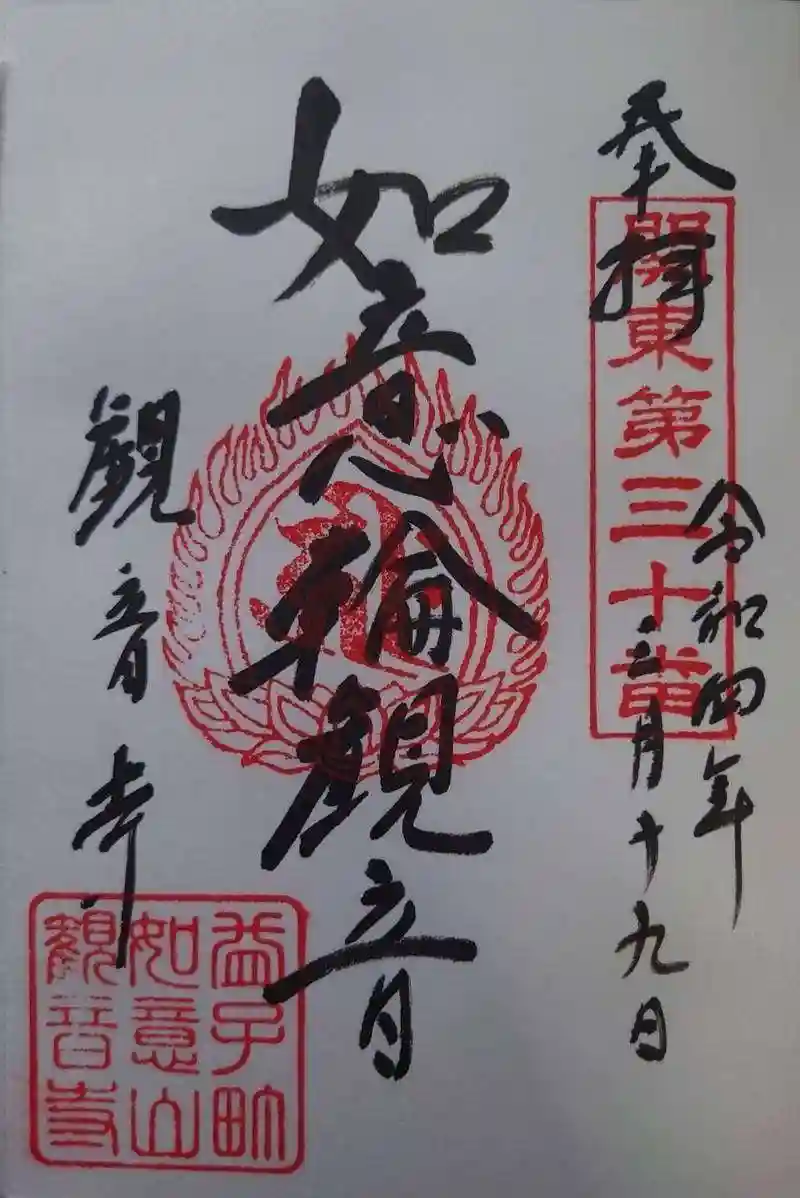 奉拝
關東第三十番
令和四年
二月十九日
如意輪観音
観音寺
益子町
如意山
観音寺